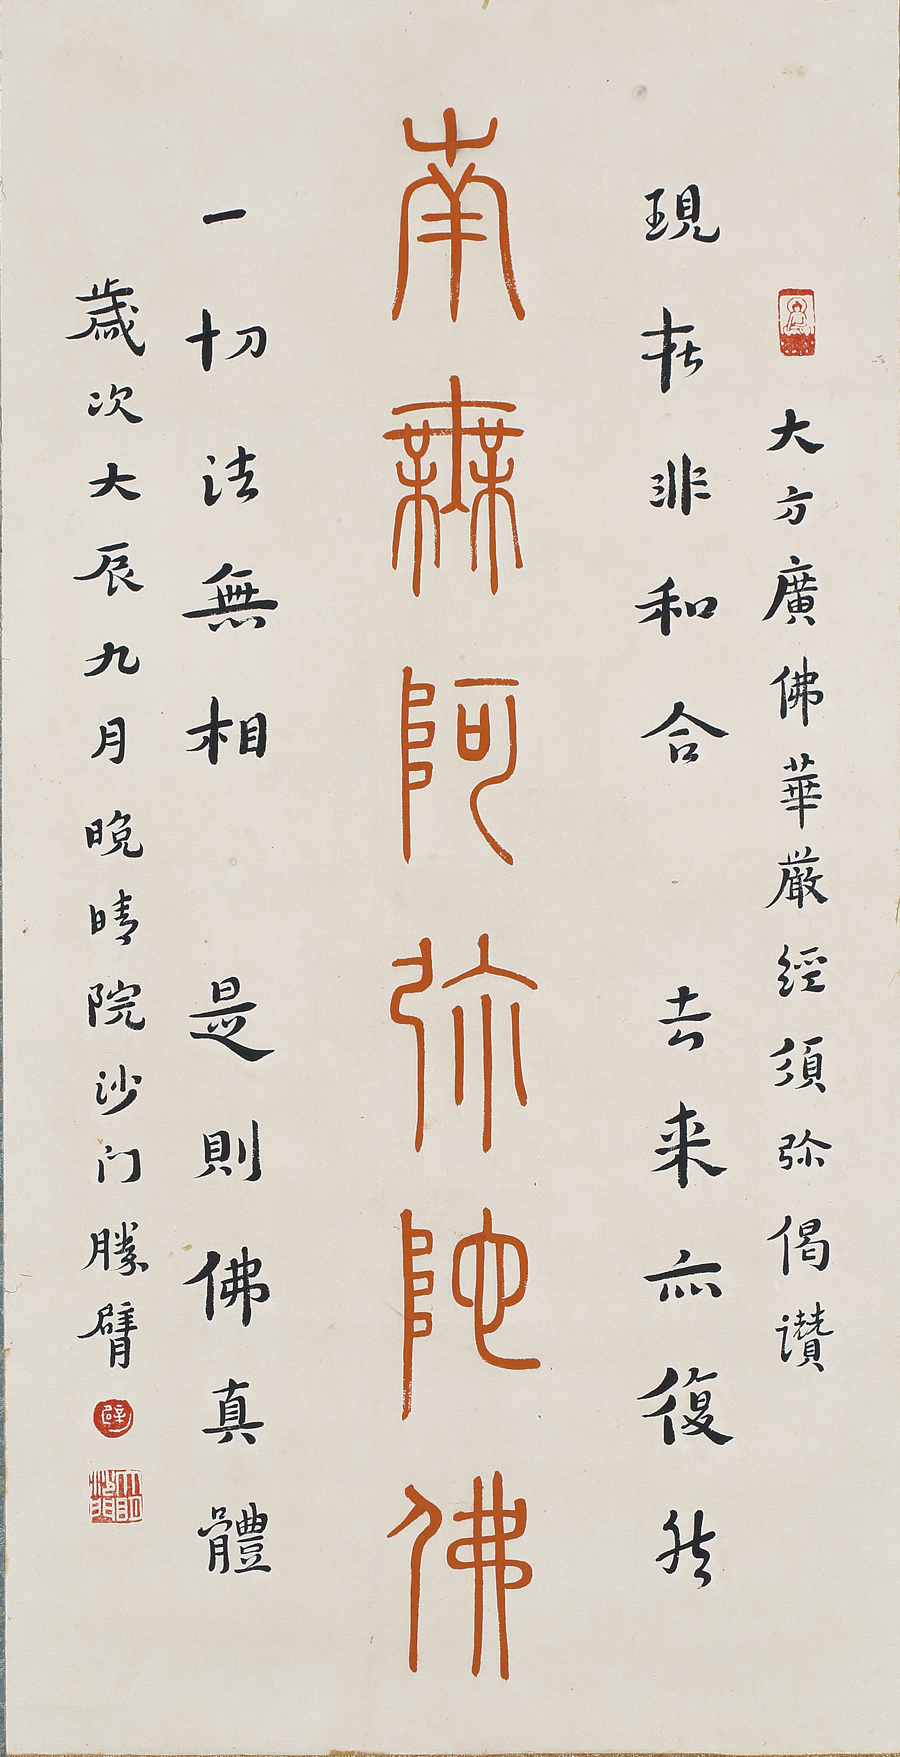 大方廣佛華嚴經須弥偈讚
現在非和合 去来亦復然
南無阿弥陀佛
一切法無相 是則佛真體
歲次大辰九月晚晴院沙门勝臂